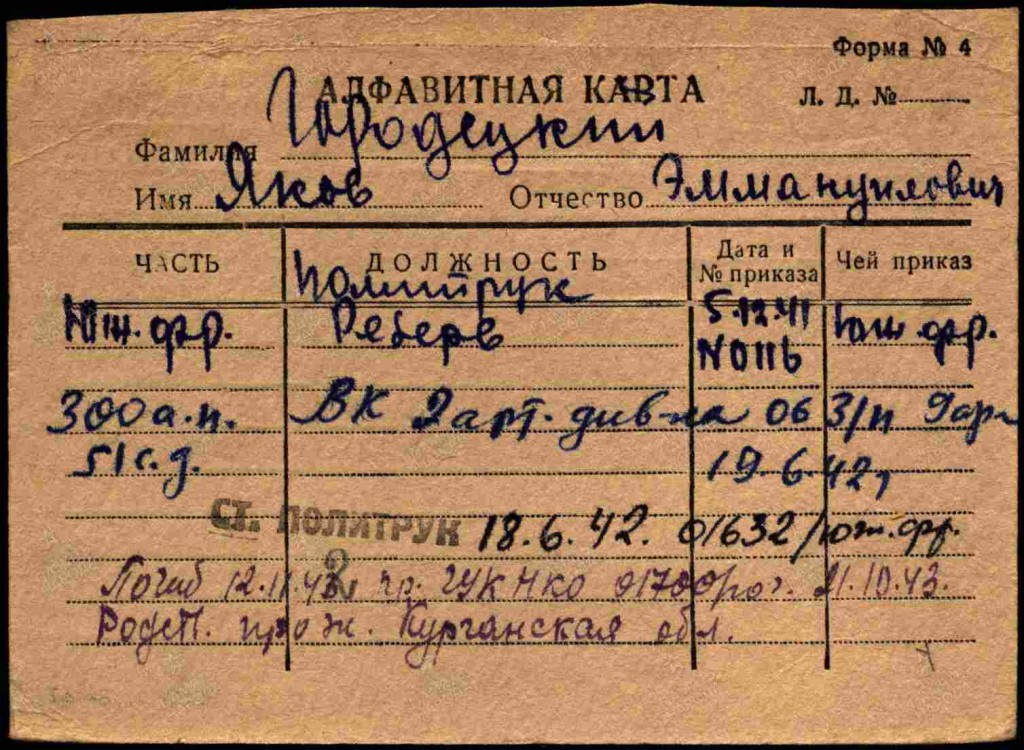 Форма № 4
АЛФАВИТНАЯ КАРТА
Л. Д. №
Фамилия Городецкий
Имя Яков Отчество Эммануилович
ЧАСТЬ ДОЛЖНОСТЬ Дата и № приказа Чей приказ
Политрук
Юж. фр. Резерв 5.12.41 Юж. фр.
№ 0116
300 а.п. ВК 2 арт. див-на 06 З/п 9 арм
51 с.д. 19.6.42,
СТ. ПОЛИТРУК 18.6.42. 01632/юж. фр.
Погиб 12.11.42 пр. ГУК НКО от 21.10.43.
Родст. прож. Курганская обл.